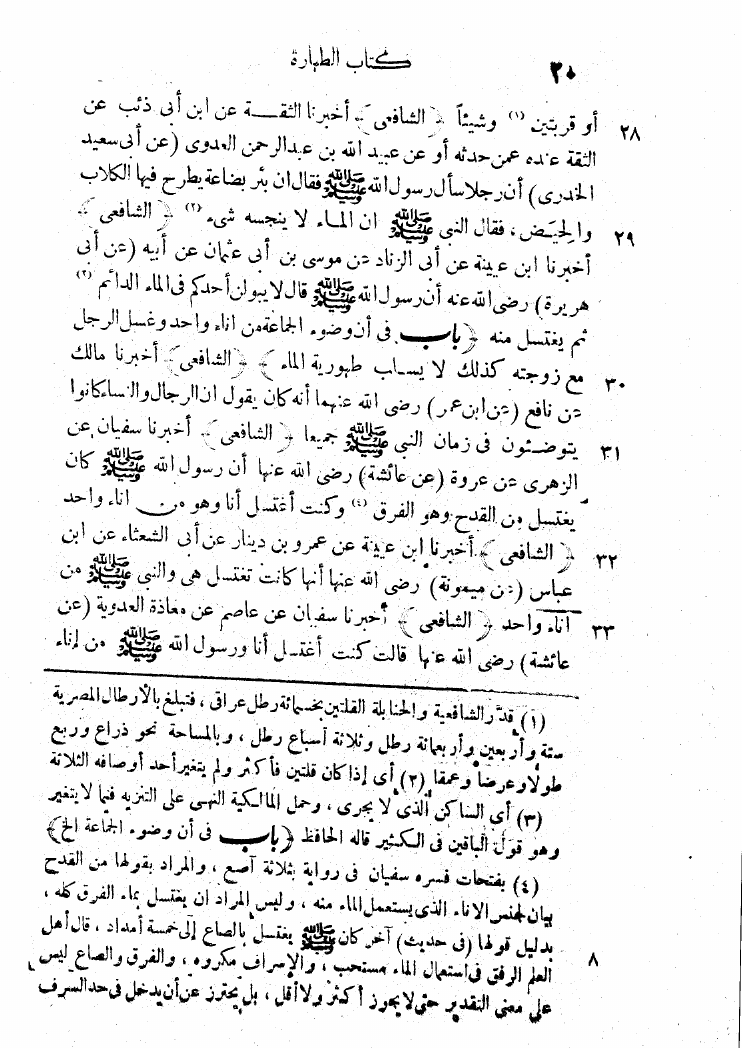 ٢٠ كتاب الطهارة
٢٨ أو قربتين (١) وشيئاً ﴿ الشافعى ﴾ أخبرنا الثقة عن ابن أبى ذئب عن
الثقة عنده عمن حدثه أو عن عبيد الله بن عبدالرحمن العدوى (عن أبى سعيد
الخدرى) أن رجلا سأل رسول الله ﷺ فقال ان بئر بضاعة يطرح فيها الكلاب
٢٩ والحيض ، فقال النبى ﷺ ان الماء لا ينجسه شىء (٢) ﴿ الشافعى ﴾
أخبرنا ابن عيينة عن أبى الزناد عن موسى بن أبى عثمان عن أبيه (عن أبى
هريرة) رضى الله عنه أن رسول الله ﷺ قال لا يبولن أحدكم فى الماء الدائم (٣)
ثم يغتسل منه ﴿ باب فى أن وضوء الجماعة من اناء واحد وغسل الرجل
٣٠ مع زوجته كذلك لا يسلب طهورية الماء ﴾ ﴿ الشافعى ﴾ أخبرنا مالك
عن نافع (عن ابن عمر) رضى الله عنهما أنه كان يقول ان الرجال والنساء كانوا
٣١ يتوضئون فى زمان النبى ﷺ جميعا ﴿ الشافعى ﴾ أخبرنا سفيان عن
الزهرى عن عروة (عن عائشة) رضى الله عنها أن رسول الله ﷺ كان
يغتسل من القدح وهو الفرق (٤) وكنت أغتسل أنا وهو من اناء واحد
٣٢ ﴿ الشافعى ﴾ أخبرنا ابن عيينة عن عمرو بن دينار عن أبى الشعثاء عن ابن
عباس (عن ميمونة) رضى الله عنها أنها كانت تغتسل هى والنبى ﷺ من
٣٣ اناء واحد ﴿ الشافعى ﴾ أخبرنا سفيان عن عاصم عن معاذة العدوية (عن
عائشة) رضى الله عنها قالت كنت أغتسل أنا ورسول الله ﷺ من إناء
(١) قدّر الشافعية والحنابلة القلتين بخمسمائة رطل عراقى ، فتبلغ بالأرطال المصرية
ستة وأربعين وأربعمائة رطل وثلاثة أسباع رطل ، وبالمساحة نحو ذراع وربع
طولا وعرضا وعمقا (٢) أى إذا كان قلتين فأكثر ولم يتغير أحد أوصافه الثلاثة
(٣) أى الساكن الذى لا يجرى ، وحمل المالكية النهى على التنزيه فيما لا يتغير
وهو قول الباقين فى الكثير قاله الحافظ ﴿ باب فى أن وضوء الجماعة الخ ﴾
(٤) بفتحات فسره سفيان فى رواية بثلاثة آصع ، والمراد بقولها من القدح
بيان لجنس الاناء الذى يستعمل الماء منه ، وليس المراد ان يغتسل بماء الفرق كله ،
بدليل قولها (فى حديث) آخر كان ﷺ يغتسل بالصاع إلى خمسة أمداد ، قال أهل
٨ العلم الرفق فى استعمال الماء مستحب ، والإسراف مكروه ، والفرق والصاع ليس
على معنى التقدير حتى لا يجوز أكثر ولا أقل ، بل يحترز عن أن يدخل فى حد السرف